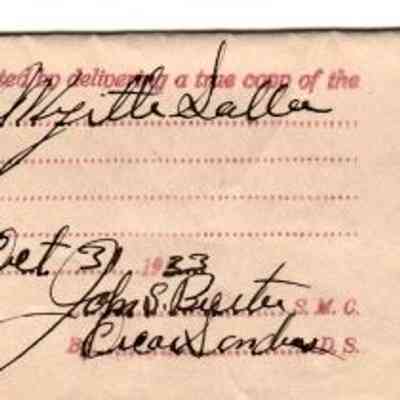 ted by delivering a true copy of the
Myrtle Sallee
Oct 31 1933
John S. Bierter S. M. C.
B Oscar Sanders D. S.